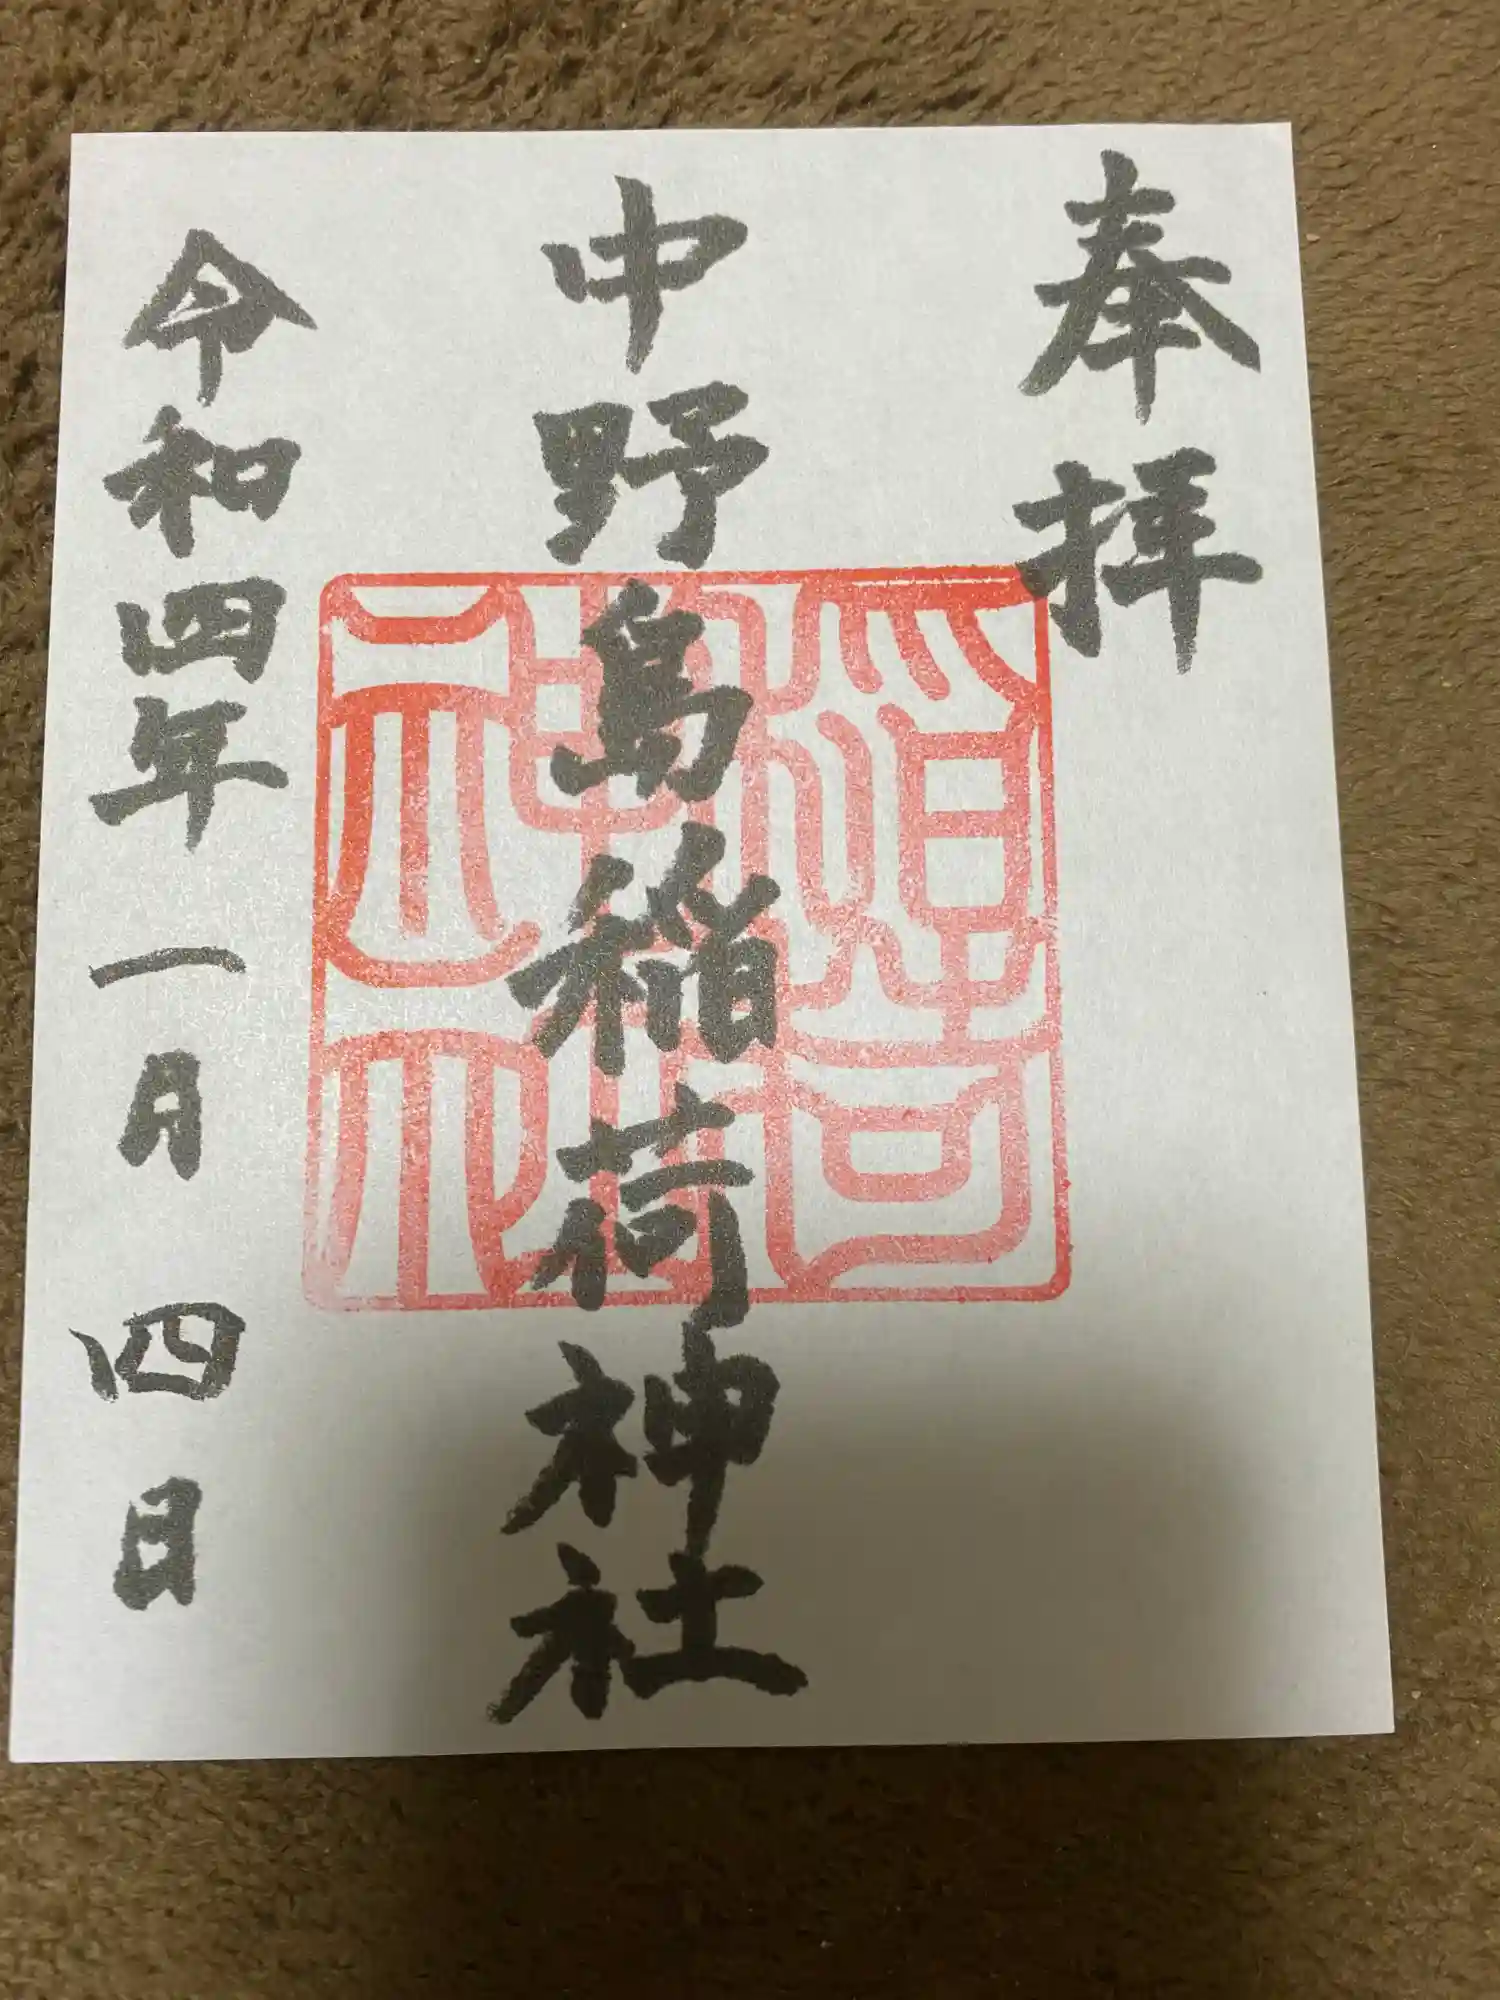 奉拝
中野島稲荷神社
令和四年一月四日